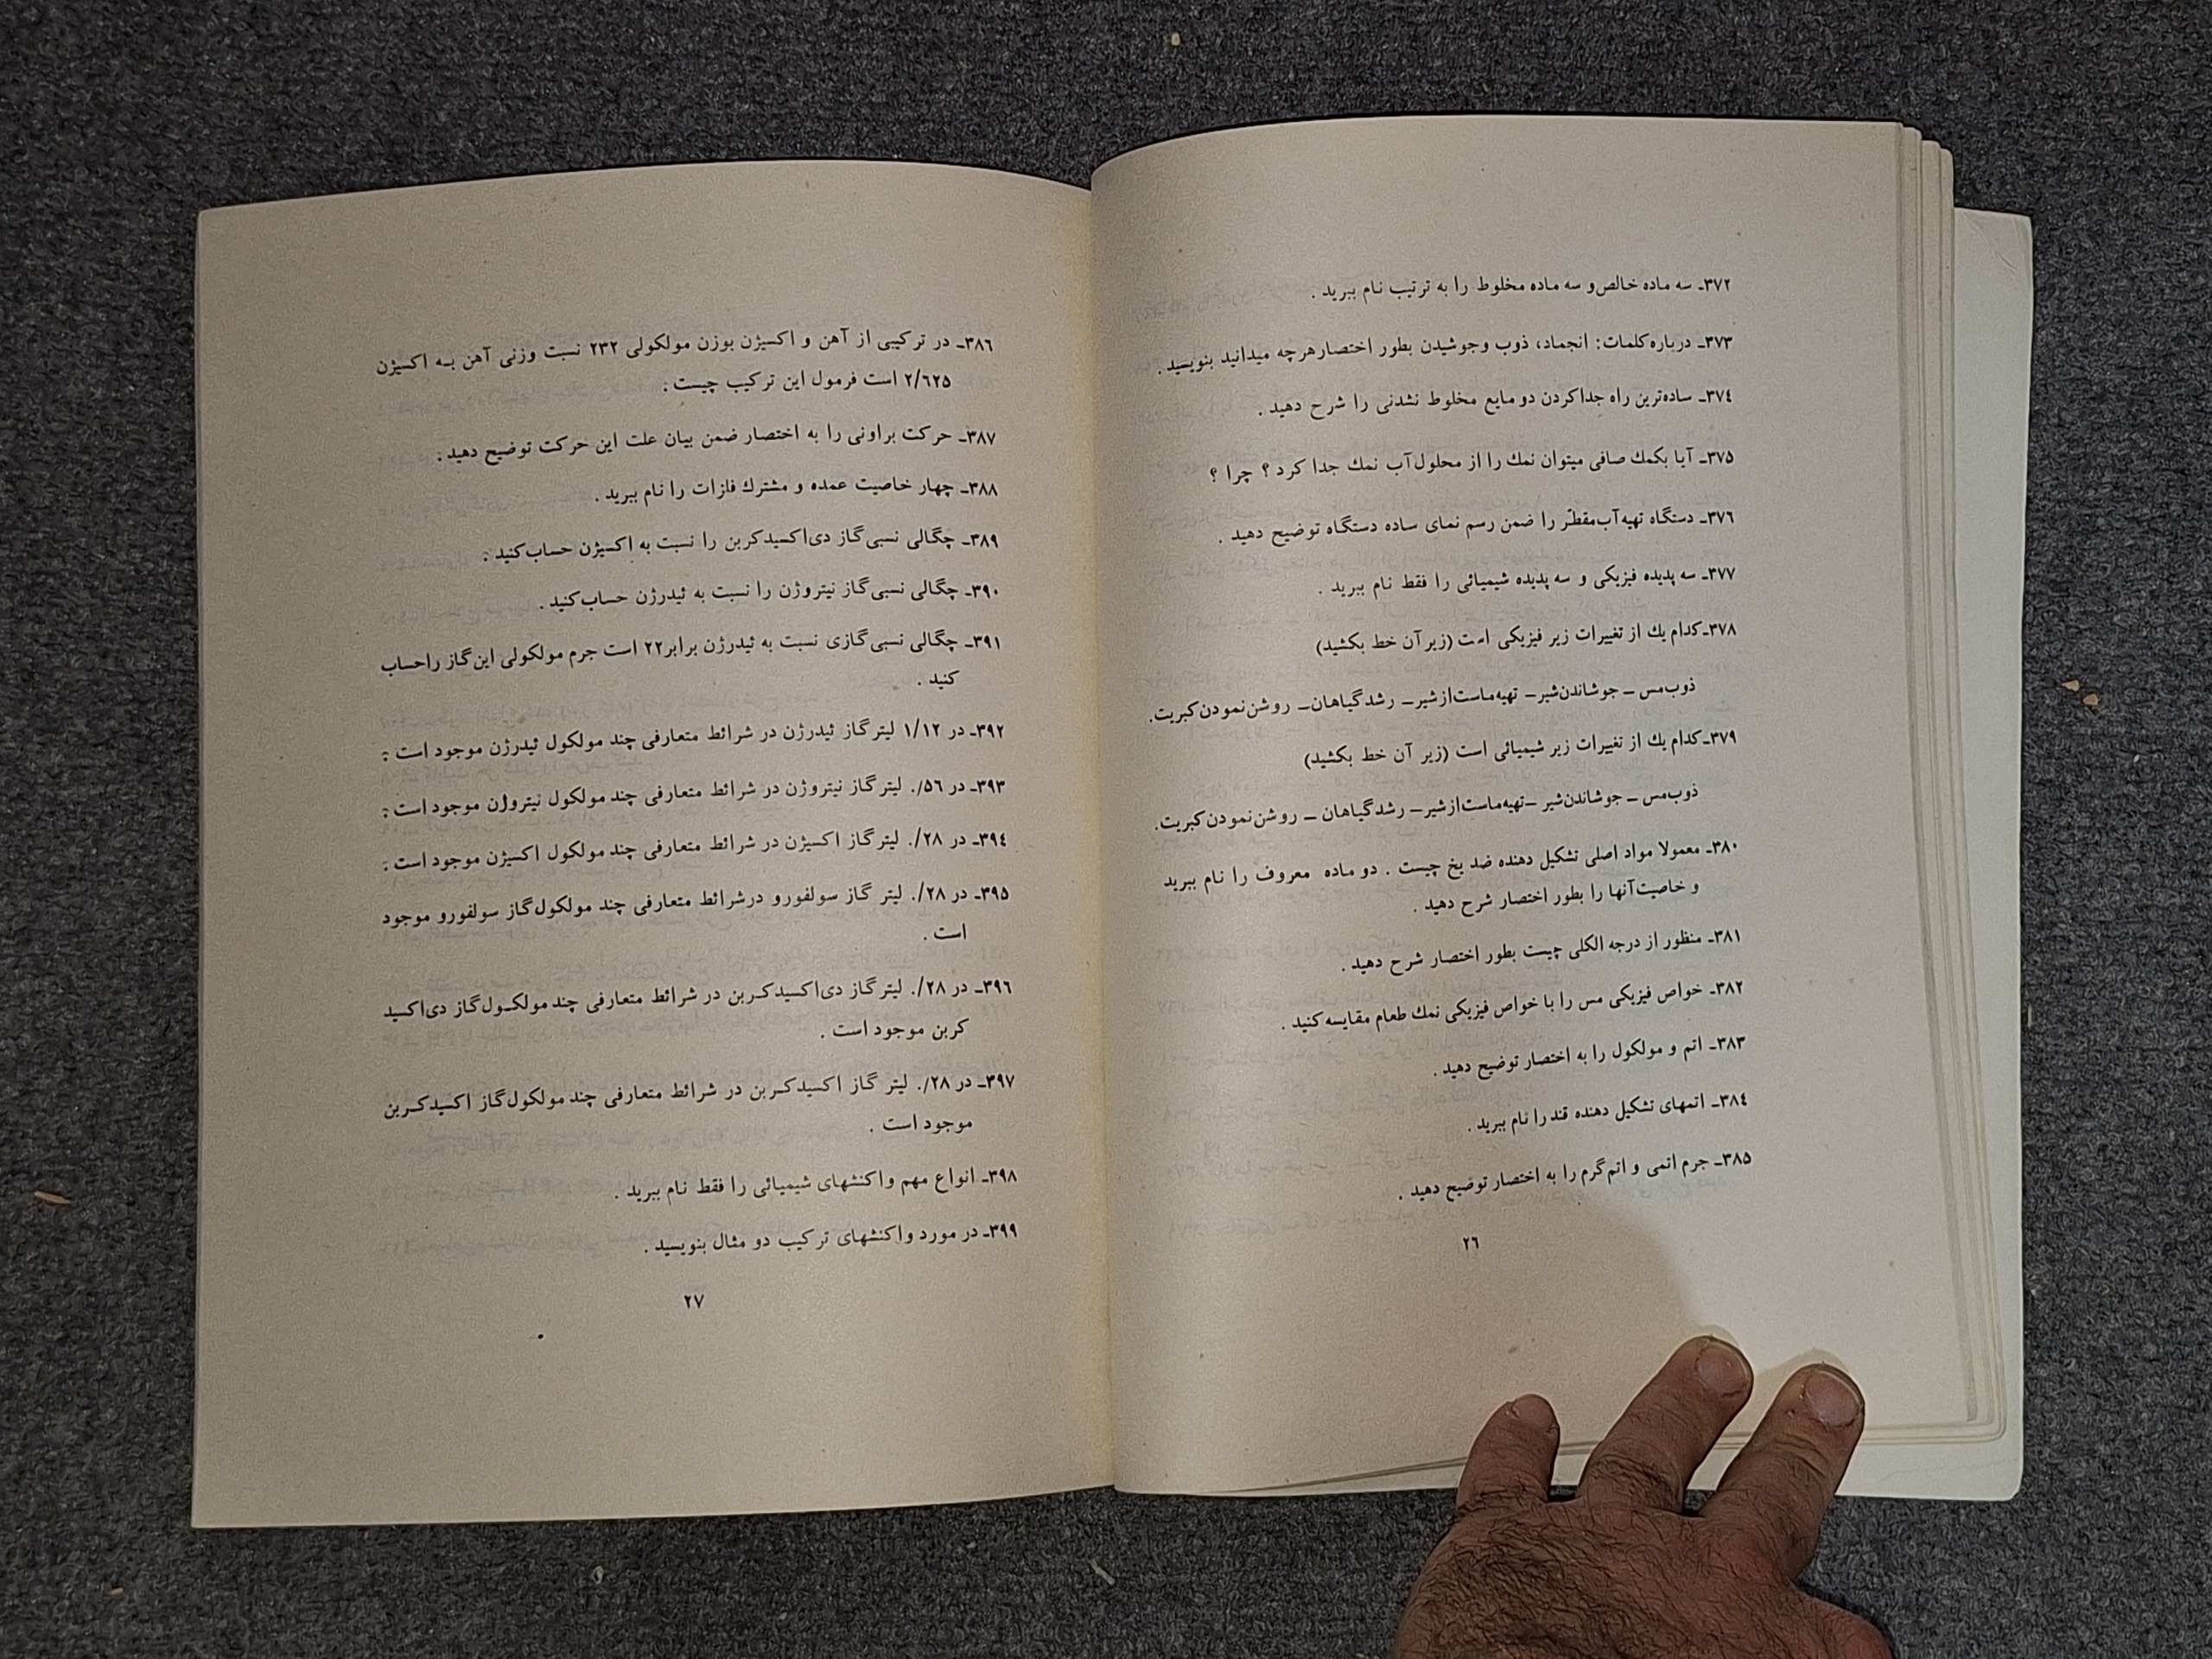 ۳۷۲ـ سه ماده خالص و سه ماده مخلوط را به ترتیب نام ببرید .
۳۷۳ـ درباره کلمات: انجماد، ذوب وجوشیدن بطور اختصار هرچه میدانید بنویسید .
۳۷٤ـ ساده‌ترین راه جدا کردن دو مایع مخلوط نشدنی را شرح دهید .
۳۷۵ـ آیا بکمك صافی میتوان نمك را از محلول آب نمك جدا کرد ؟ چرا ؟
۳۷٦ـ دستگاه تهیه آب مقطّر را ضمن رسم نمای ساده دستگاه توضیح دهید .
۳۷۷ـ سه پدیده فیزیکی و سه پدیده شیمیائی را فقط نام ببرید .
۳۷۸ـ کدام یك از تغییرات زیر فیزیکی است (زیر آن خط بکشید)
ذوب مس ـ جوشاندن شیر ـ تهیه ماست از شیر ـ رشد گیاهان ـ روشن نمودن کبریت.
۳۷۹ـ کدام یك از تغییرات زیر شیمیائی است (زیر آن خط بکشید)
ذوب مس ـ جوشاندن شیر ـ تهیه ماست از شیر ـ رشد گیاهان ـ روشن نمودن کبریت.
۳۸۰ـ معمولا مواد اصلی تشکیل دهنده ضد یخ چیست . دو ماده معروف را نام ببرید
و خاصیت آنها را بطور اختصار شرح دهید .
۳۸۱ـ منظور از درجه الکلی چیست بطور اختصار شرح دهید .
۳۸۲ـ خواص فیزیکی مس را با خواص فیزیکی نمك طعام مقایسه کنید .
۳۸۳ـ اتم و مولکول را به اختصار توضیح دهید .
۳۸٤ـ اتمهای تشکیل دهنده قند را نام ببرید .
۳۸۵ـ جرم اتمی و اتم گرم را به اختصار توضیح دهید .
۲٦
۳۸٦ـ در ترکیبی از آهن و اکسیژن بوزن مولکولی ۲۳۲ نسبت وزنی آهن بـه اکسیژن
۲/٦۲۵ است فرمول این ترکیب چیست .
۳۸۷ـ حرکت براونی را به اختصار ضمن بیان علت این حرکت توضیح دهید .
۳۸۸ـ چهار خاصیت عمده و مشترك فلزات را نام ببرید .
۳۸۹ـ چگالی نسبی گاز دی‌اکسید کربن را نسبت به اکسیژن حساب کنید .
۳۹۰ـ چگالی نسبی گاز نیتروژن را نسبت به ئیدرژن حساب کنید .
۳۹۱ـ چگالی نسبی گازی نسبت به ئیدرژن برابر ۲۲ است جرم مولکولی این گاز را حساب
کنید .
۳۹۲ـ در ۱/۱۲ لیتر گاز ئیدرژن در شرائط متعارفی چند مولکول ئیدرژن موجود است .
۳۹۳ـ در ۵٦/. لیتر گاز نیتروژن در شرائط متعارفی چند مولکول نیتروژن موجود است .
۳۹٤ـ در ۲۸/. لیتر گاز اکسیژن در شرائط متعارفی چند مولکول اکسیژن موجود است .
۳۹۵ـ در ۲۸/. لیتر گاز سولفورو در شرائط متعارفی چند مولکول گاز سولفورو موجود
است .
۳۹٦ـ در ۲۸/. لیتر گاز دی‌اکسید کـربن در شرائط متعارفی چند مولکـول گاز دی‌اکسید
کربن موجود است .
۳۹۷ـ در ۲۸/. لیتر گاز اکسید کـربن در شرائط متعارفی چند مولکول گاز اکسید کـربن
موجود است .
۳۹۸ـ انواع مهم واکنشهای شیمیائی را فقط نام ببرید .
۳۹۹ـ در مورد واکنشهای ترکیب دو مثال بنویسید .
۲۷